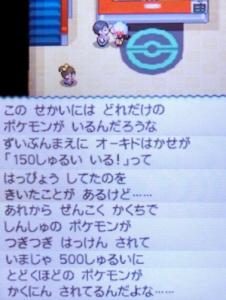 この せかいには どれだけの
ポケモンが いるんだろうな
ずいぶんまえに オーキドはかせが
「150しゅるい いる！」って
はっぴょう してたのを
きいたことが あるけど……
あれから ぜんこく かくちで
しんしゅの ポケモンが
つぎつぎ はっけん されて
いまじゃ 500しゅるいに
とどくほどの ポケモンが
かくにん されてるんだよな……